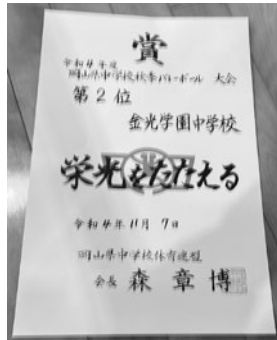 賞
令和4年度
岡山県中学校秋季バレーボール 大会
第2位
金光学園中学校
栄光をたたえる
令和4年11月7日
岡山県中学校体育連盟
会長 森章博